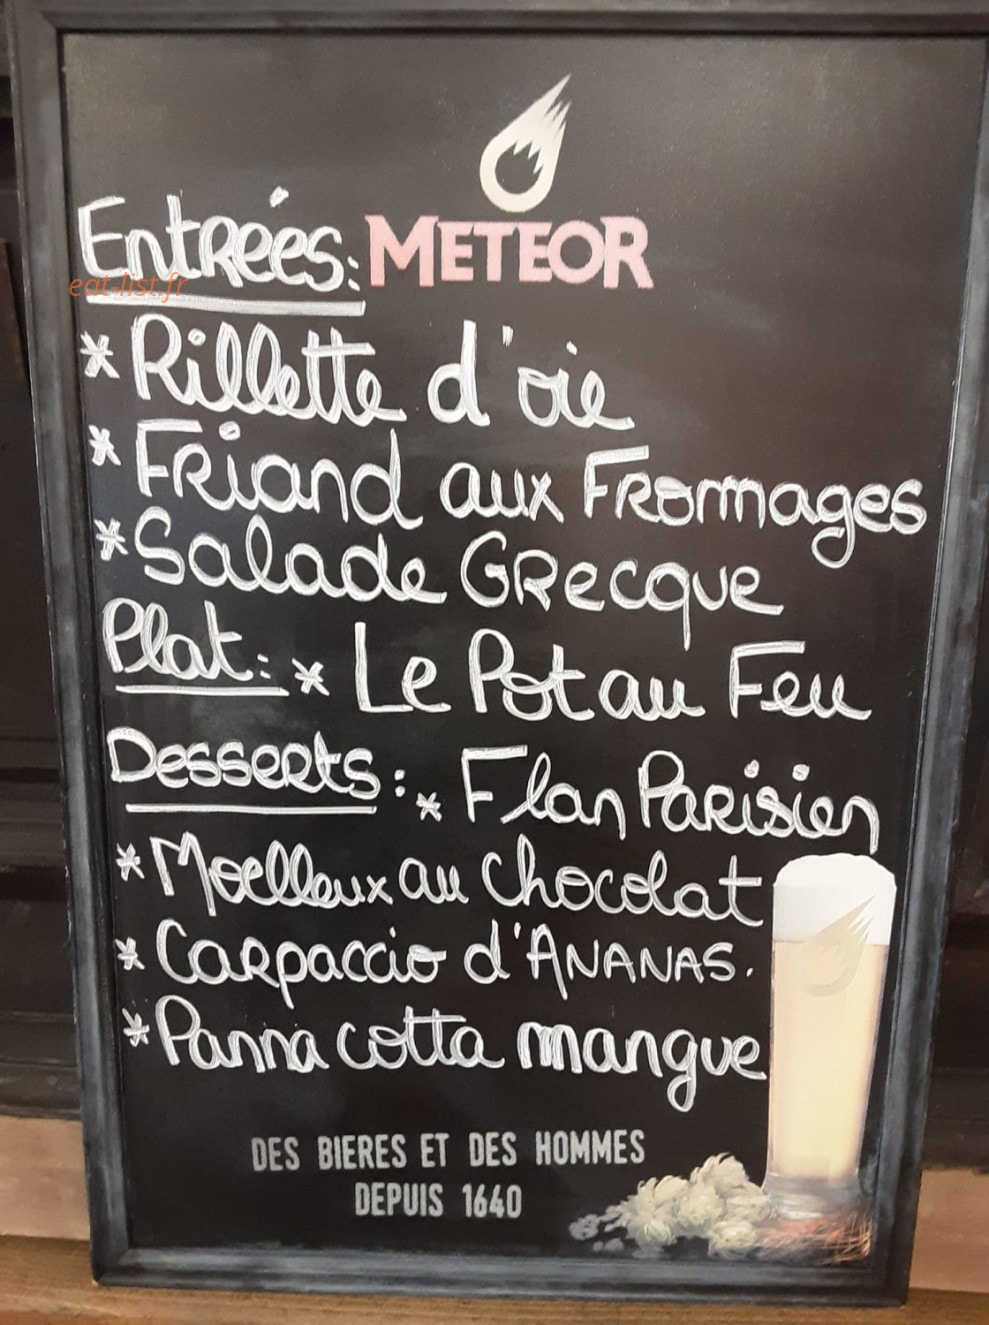 METEOR
Entrées:
eat-list.fr
* Rillette d'oie
* Friand aux Fromages
* Salade Grecque
Plat: * Le Pot au Feu
Desserts: * Flan Parisien
* Moelleux au Chocolat
* Carpaccio d'ANANAS.
* Panna cotta mangue
DES BIERES ET DES HOMMES
DEPUIS 1640